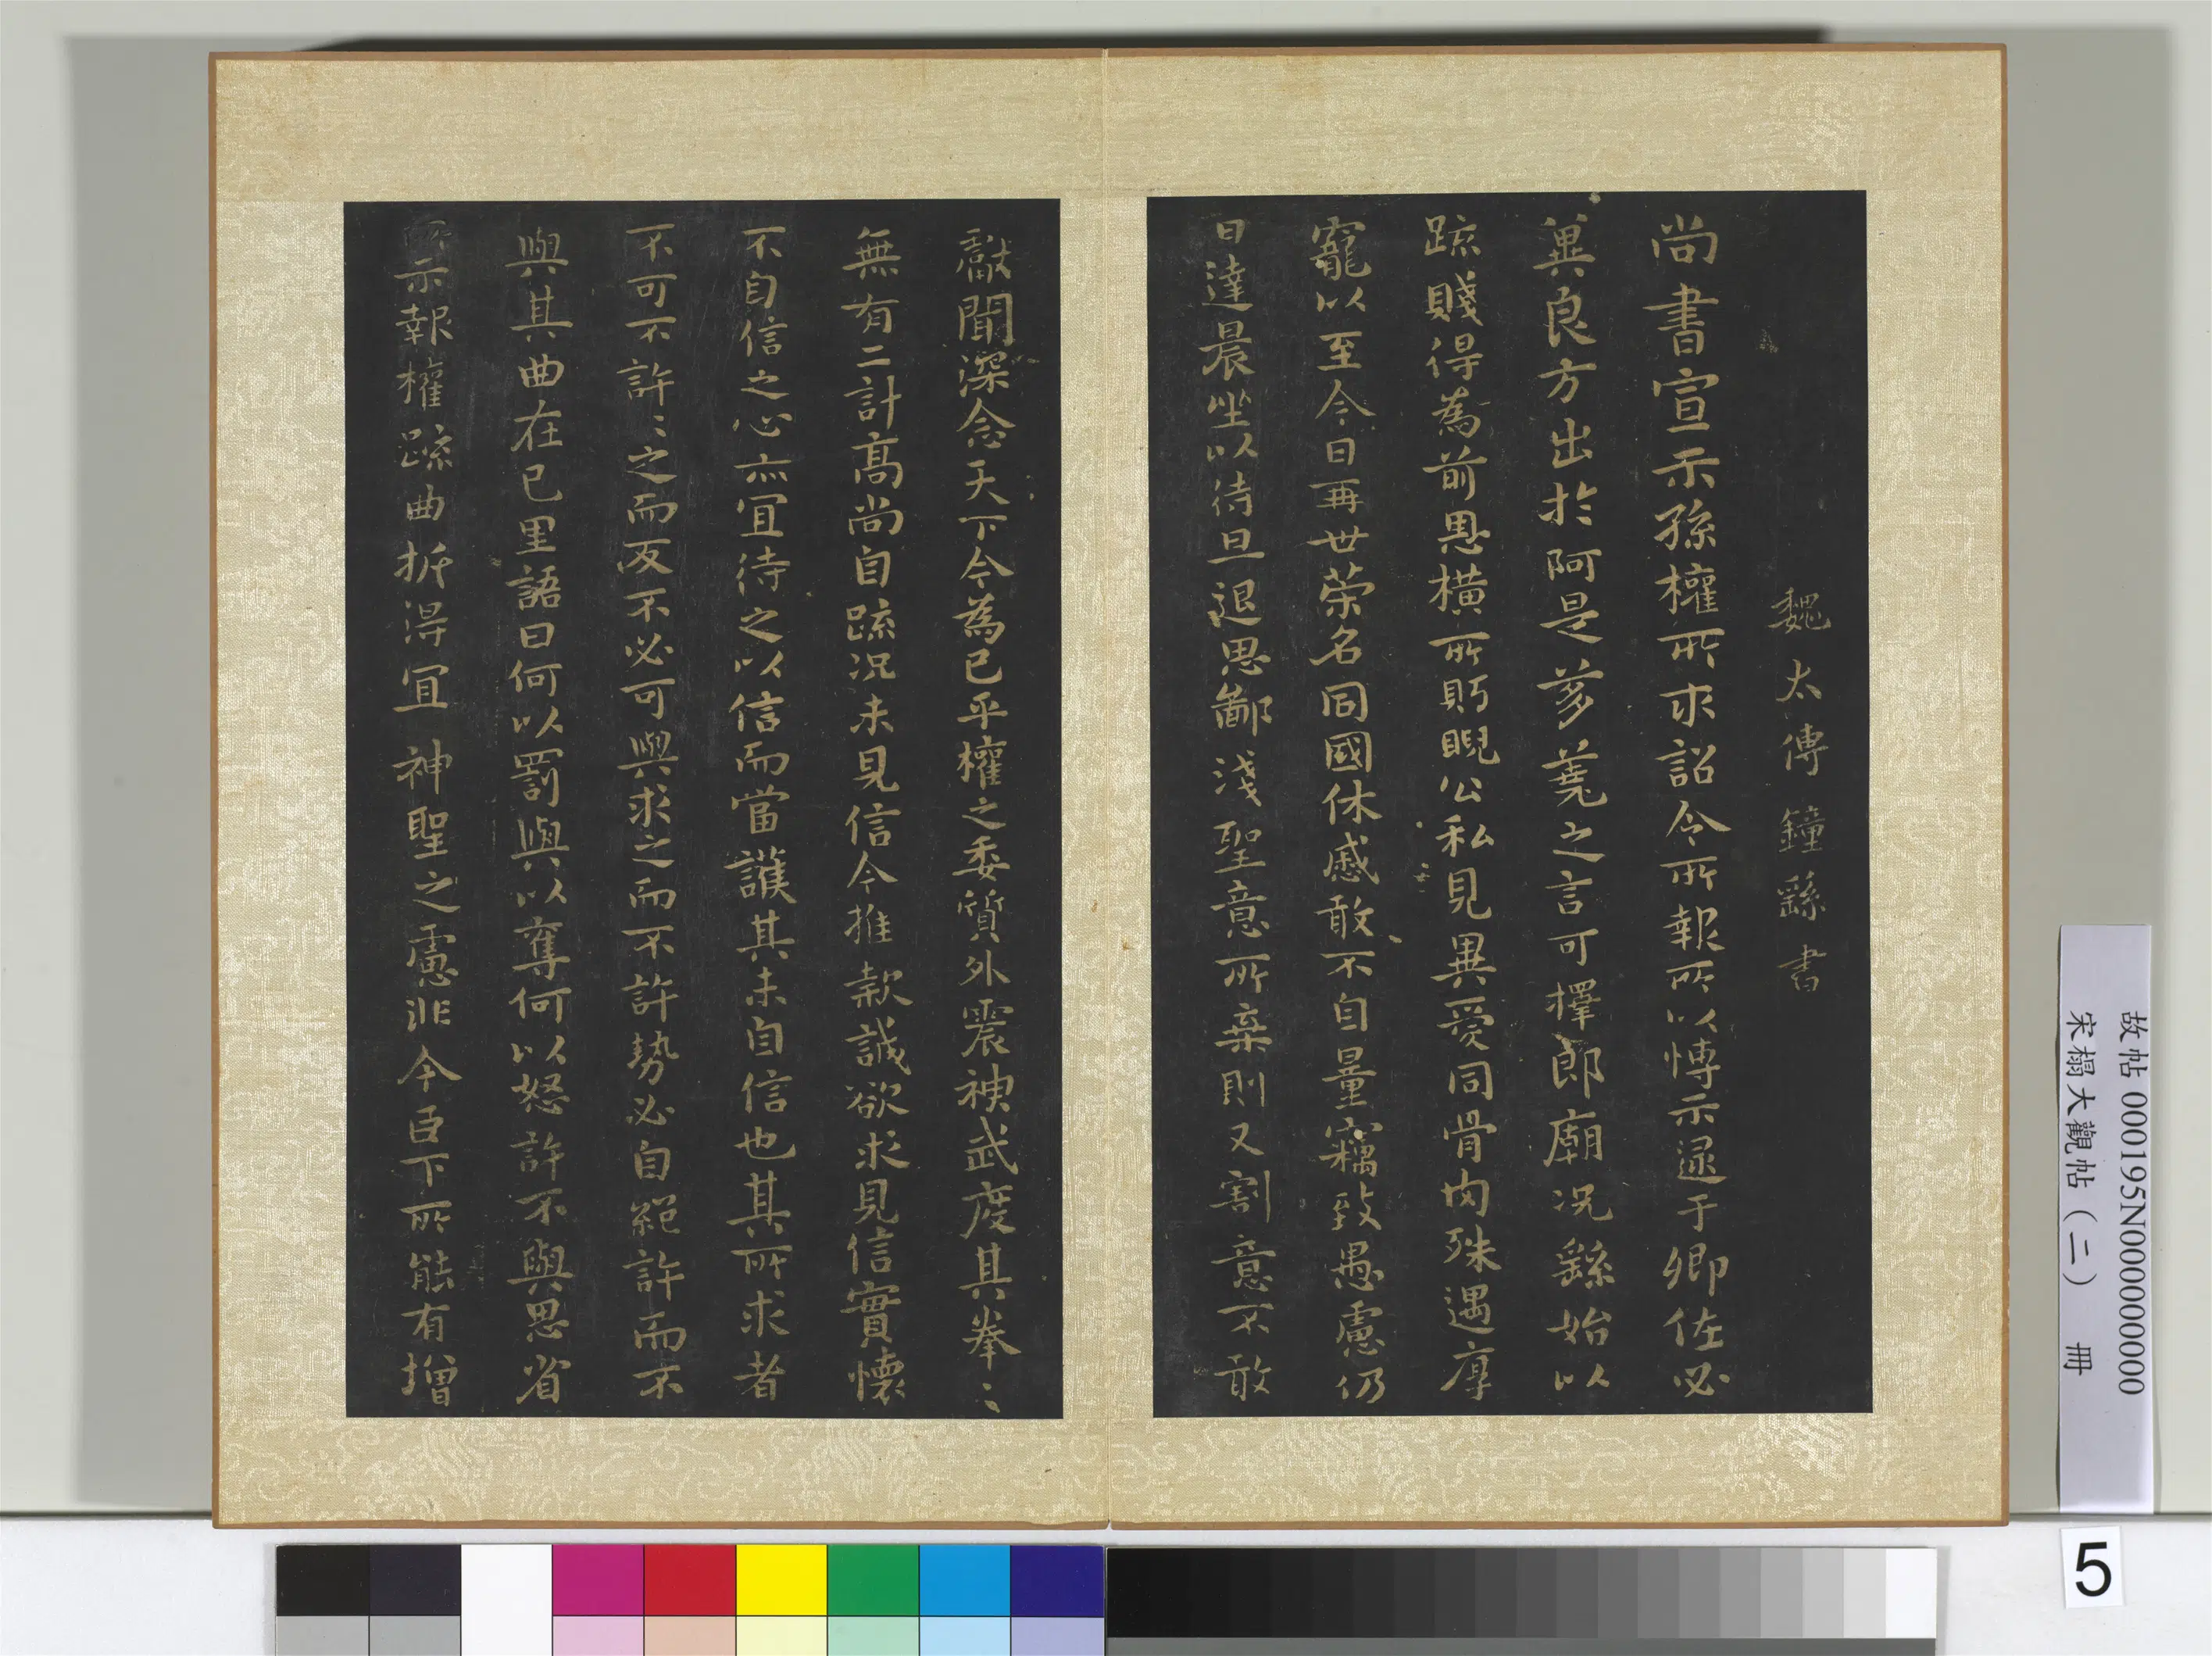 魏太傅鍾繇書
尚書宣示孫權所求詔令所報所以博示逮于卿佐必
異良方出於阿是芻蕘之言可擇郎廟況繇始以
疏賤得為前恩橫所眄睨公私見異愛同骨肉殊遇厚
寵以至今日再世荣名同國休慼敢不自量竊致愚慮仍
日達晨坐以待旦退思鄙淺聖意所棄則又割意不敢
獻聞深念天下今為已平權之委質外震神武度其拳〻
無有二計高尚自疏況未見信今推款誠欲求見信實懷
不自信之心亦宜待之以信而當護其未自信也其所求者
不可不許〻之而反不必可與求之而不許勢必自絕許而不
與其曲在己里語曰何以罰與以奪何以怒許不與思省
所示報權疏曲折得宜神聖之慮非今臣下所能有增
故帖 000195N000000000
宋榻大觀帖（二） 冊
5